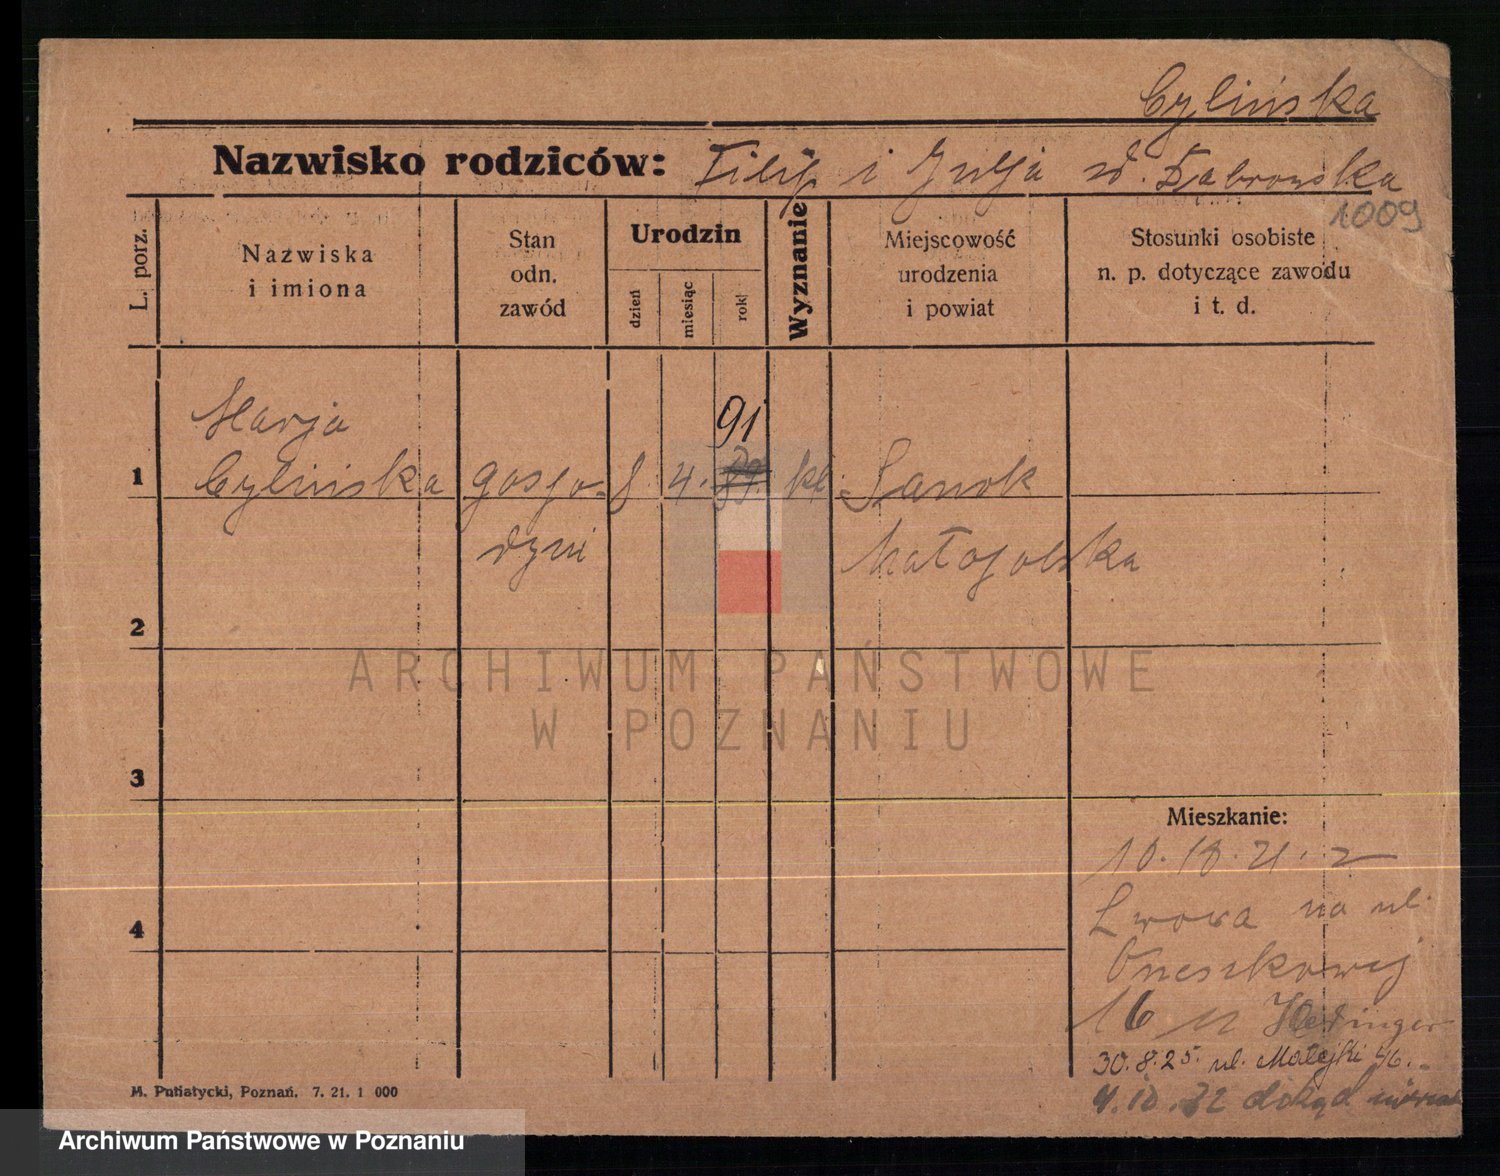 Cylińska
Nazwisko rodziców: Filip i Julja d. Dabrowska
1009
L. porz.
Nazwiska
i imiona
Stan
odn.
zawód
Urodzin
dzień
miesiąc
rok
Wyznanie
Miejscowość
urodzenia
i powiat
Stosunki osobiste
n. p. dotyczące zawodu
i t. d.
Marja
91
1 Cylińska gospo- 8 4. kt. Sanok
dyni Małopolska
2
ARCHIWUM PAŃSTWOWE
W POZNANIU
3
Mieszkanie:
10. 10. 21. z
4 Lwowa na ul.
16 Hedinger
30.8.25. ul. Matejki 46.
dokąd
M. Putiatycki, Poznań. 7. 21. 1 000
Archiwum Państwowe w Poznaniu